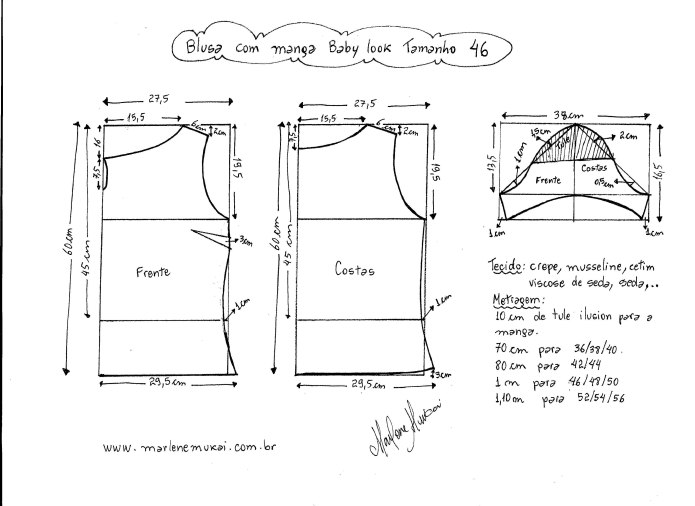 Blusa com manga Baby look Tamanho 46
27,5
15,5
6cm
2cm
16
7,5
19,5
60cm
45cm
3cm
Frente
1cm
29,5cm
27,5
15,5
6cm
2cm
7,5
19,5
60cm
45cm
Costas
1cm
3cm
29,5cm
38cm
1,5cm
Tule
2cm
1cm
13,5
16,5
Frente
Costas
0,5cm
1cm
1cm
Tecido: crepe, musseline, cetim
viscose de seda, seda,..
Metragem:
10 cm de tule ilusion para a
manga.
70 cm para 36/38/40.
80 cm para 42/44
1 m para 46/48/50
1,10m para 52/54/56
Marlene Mukai
www.marlenemukai.com.br